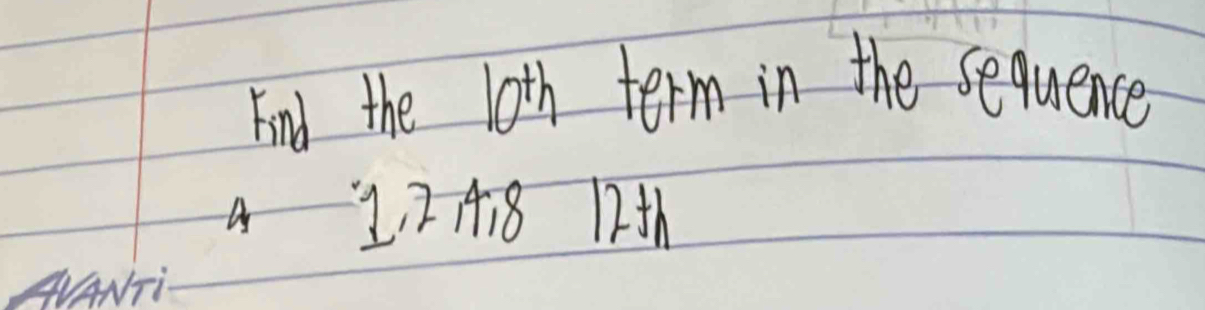 Find the 10th term in the sequence
A 1,2,4,8 12th
AVANTi